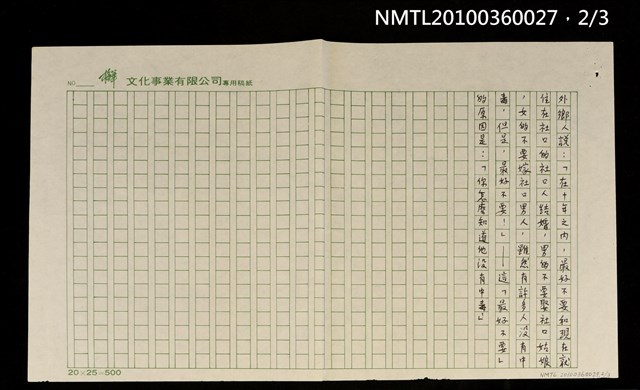 NMTL20100360027，2/3
NO
文化事業有限公司專用稿紙
外鄉人說：「在十年之內，最好不要和現在就
住在社口的社口人結婚，男的不要娶社口姑娘
，女的不要嫁社口男人，雖然有許多人沒有中
毒，但是，最好不要！」——這「最好不要」
的原因是：「你怎麼知道他沒有中毒」
20×25=500
NMTL 20100360027 2/3